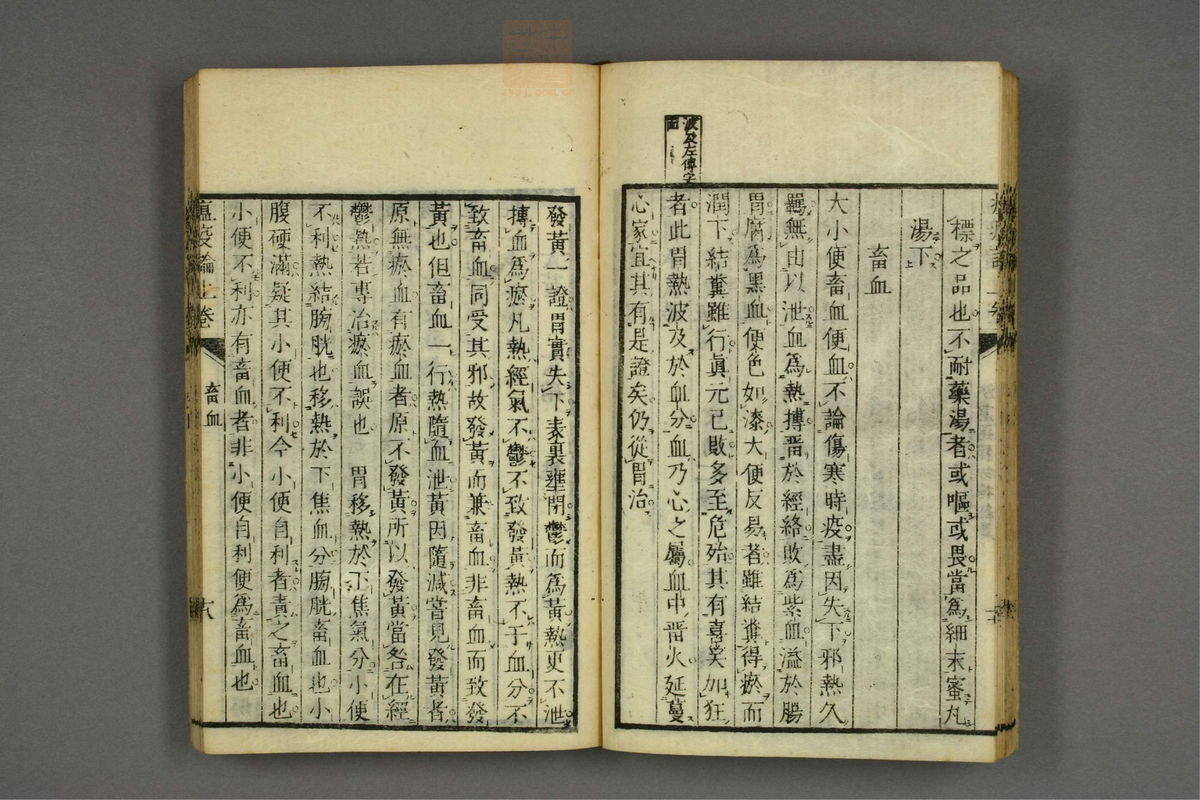 波及左傳字
面
標之品也不耐藥湯者或嘔或畏當爲細末蜜丸
湯下
畜血
大小便畜血便血不論傷寒時疫盡因失下邪熱久
羈無由以泄血爲熱搏畱於經絡敗爲紫血溢於腸
胃腐爲黑血便色如漆大便反易者雖結糞得瘀而
潤下結糞雖行眞元已敗多至危殆其有喜笑如狂
者此胃熱波及於血分血乃心之屬血中畱火延蔓
心家宜其有是證矣仍從胃治
發黃一證胃實失下表裏壅閉鬱而爲黃熱更不泄
搏血爲瘀凡熱經氣不鬱不致發黃熱不干血分不
致畜血同受其邪故發黃而兼畜血非畜血而致發
黃也但畜血一行熱隨血泄黃因隨減嘗見發黃者
原無瘀血有瘀血者原不發黃所以發黃當咎在經
鬱熱若專治瘀血誤也 胃移熱於下焦氣分小便
不利熱結膀胱也移熱於下焦血分膀胱畜血也小
腹硬滿疑其小便不利今小便自利者責之畜血也
小便不利亦有畜血者非小便自利便爲畜血也
瘟疫論上卷 畜血 八